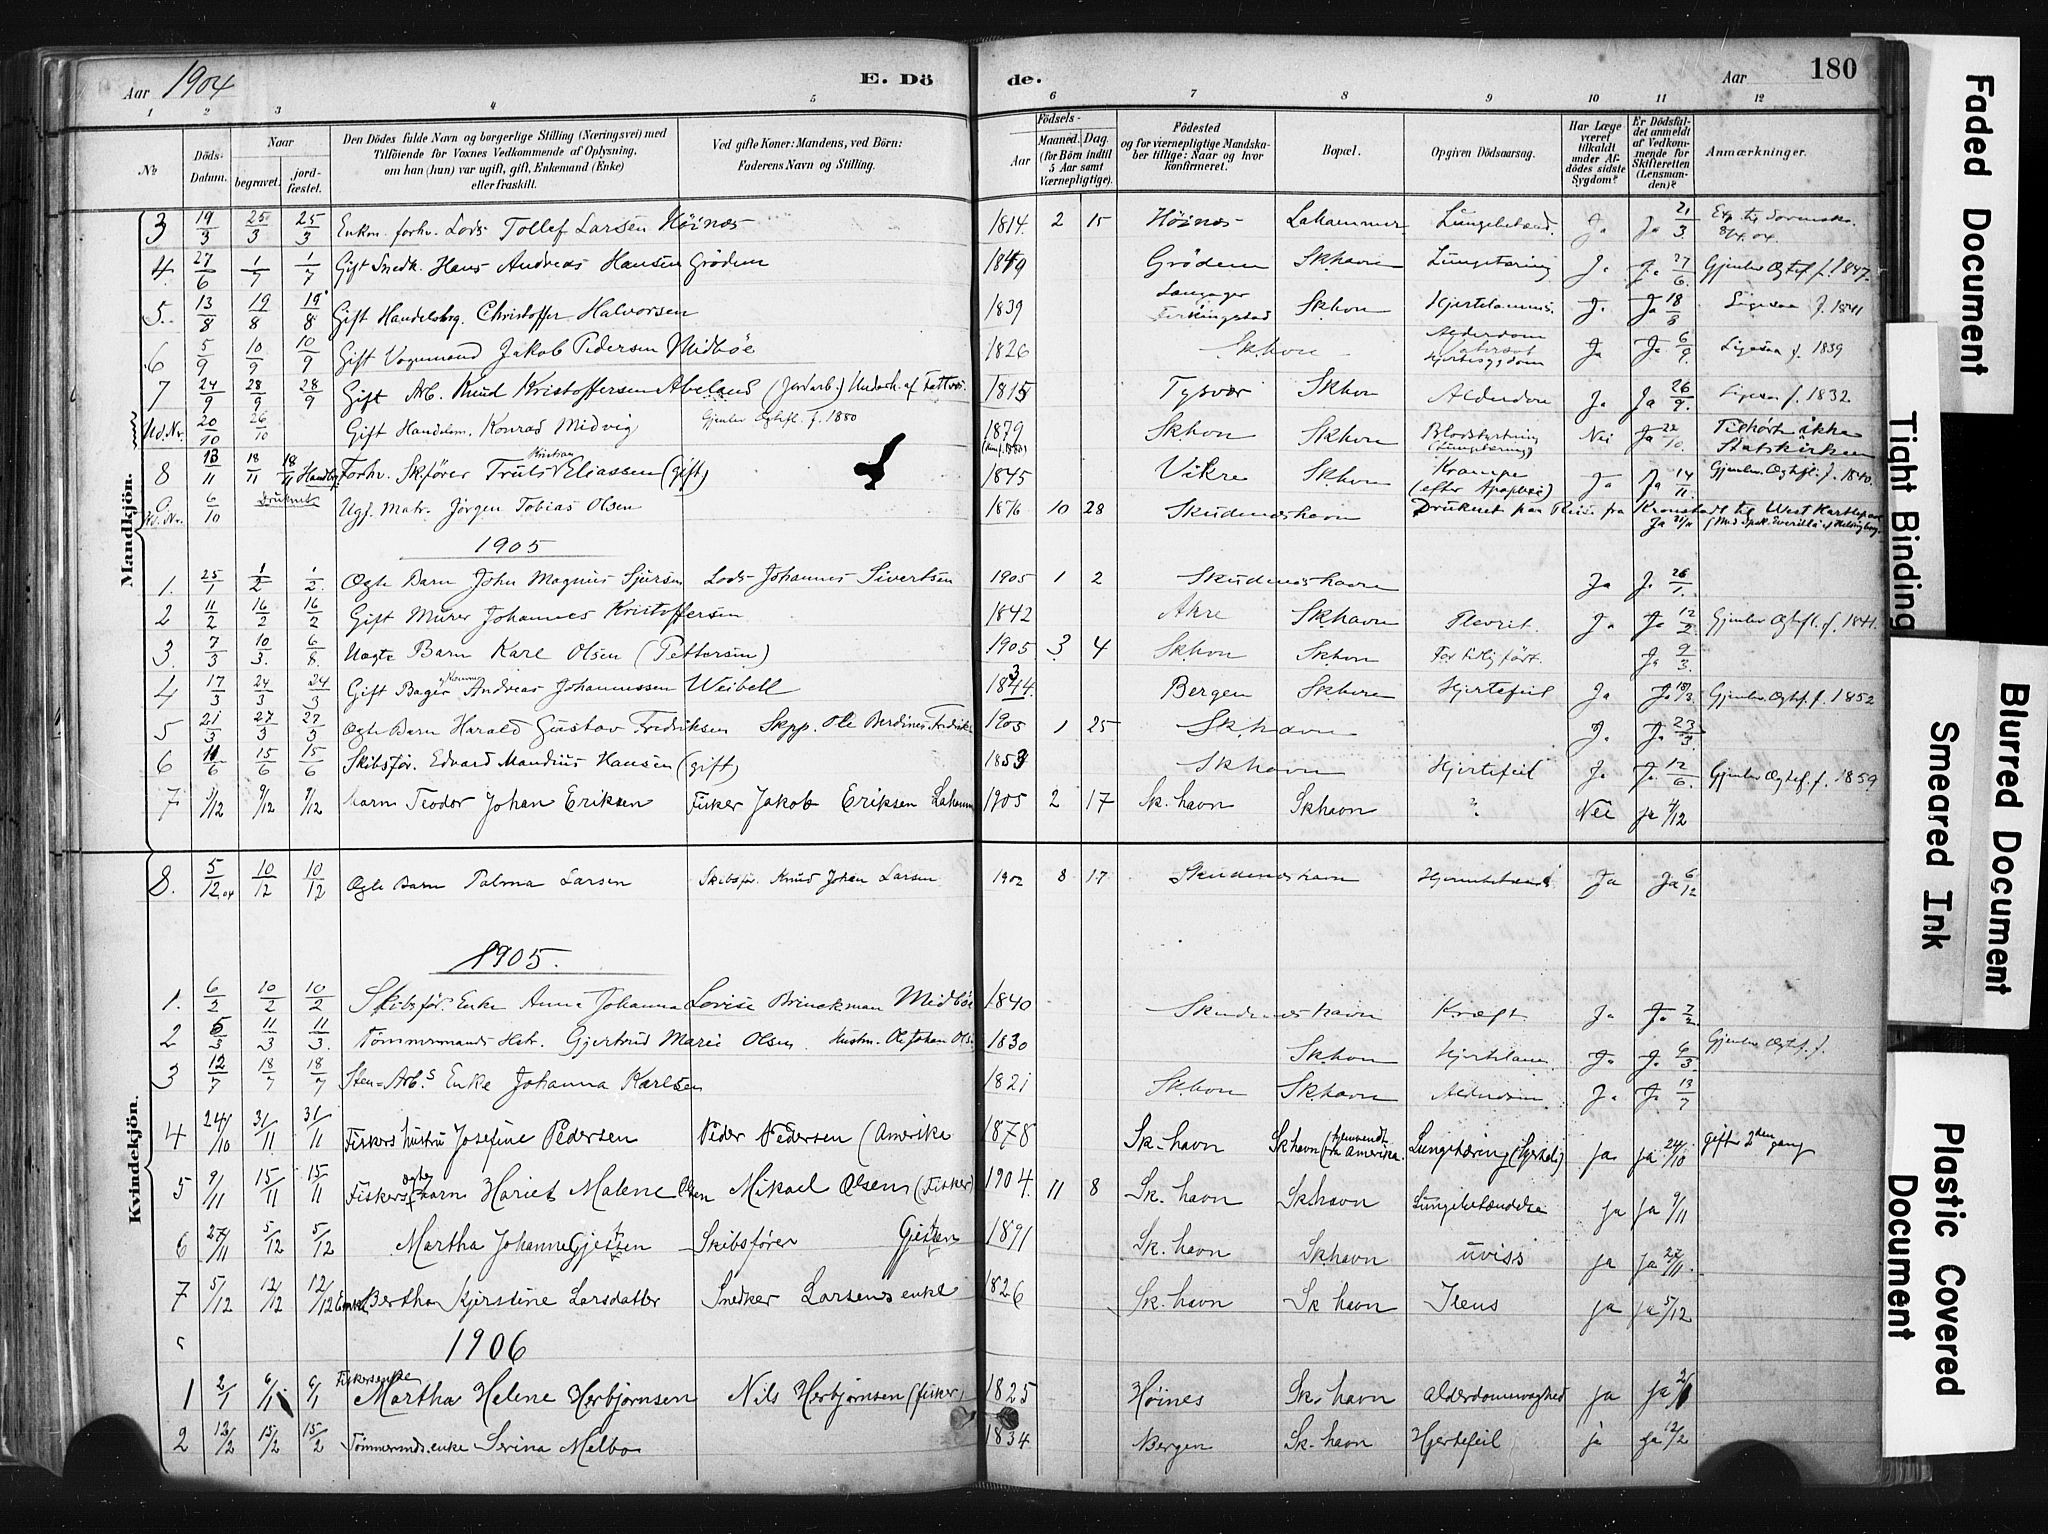 Aar 1904
E. Dö
de.
Aar
180
1 2 3 4 5 6 7 8 9 10 11 12
№
Döds-Datum.
Naar
begravet.
jord-fæstet.
Den Dödes fulde Navn og borgerlige Stilling (Næringsvei) med
Tilföiende for Voxnes Vedkommende af Oplysning,
om han (hun) var ugift, gift, Enkemand (Enke)
eller fraskilt.
Ved gifte Koner: Mandens, ved Börn:
Faderens Navn og Stilling.
Födsels-
Aar
Maaned. Dag.
(for Börn indtil
5 Aar samt
Værnepligtige).
Födested
og for værnepligtige Mandska-
ber tillige: Naar og hvor
konfirmeret.
Bopæl.
Opgiven Dödsaarsag.
Har Læge
været
tilkaldt
under Af-
dödes sidste
Sygdom?
Er Dödsfal-
det anmeldt
af Vedkom-
mende for
Skifteretten
(Lensman-
den)?
Anmærkninger.
Mandkjön.
3 19/3 25/3 25/3 Enkm. forhv. Lods Tollef Larsen Höines 1814. 2 15 Höines Lahammer Lungebetænd. Ja Ja 21/3
4. 27/6 1/7 1/7 Gift Snedk. Hans Andreas Hansen Gröden 1849 Gröden Skhavn Lungetæring J. J. 27/6. Gjenlev. Ægtef. f. 1847.
5. 13/8 19/8 19/8 Gift Handelsbg. Christoffer Halvorsen 1839 Skhavn Hjertelammelse J. Ja 18/8 Ligesaa f. 1841
6 5/9 10/9 10/9 Gift Vognmand Jakob Pedersen Midböe 1826 Skhavn Alderdom Hjertesygdom Ja Ja 6/9. Ligesaa f. 1839
7 24/9 28/9 28/9 Gift Arb. Knud Kristoffersen Abeland (Jordarb.) Underh. af Fattigv. 1815 Tysvær Skhavn Alderdom Ja Ja 26/9. Ligesaa f. 1832
Ud. Nr. 20/10 26/10 Gift Handelsm. Konrad Midvig Gjenlev Ægtefl. f. 1880 1879 Skhavn Skhavn Blodstyrtning (Lungetæring) Nei Ja 22/10. Tilhörte ikke Statskirken
8 13/11 18/11 18/11 Forhv. Skfförer Truls Kristian Eliassen (gift) 1845 Vikre Skhavn Krampe (efter Apoplexi) Ja Ja 14/11. Gjenlev. Ægtefl. f. 1840.
Ud. Nr. 6/10 druknet Ugf. Matr. Jörgen Tobias Olsen 1876 10 28 Skudeneshavn Druknet paa Reise fra Kronstadt til West Hartlepool
1905
1. 25/1 1/2 1/2. Ægte Barn John Magnus Sjursen Lods Johannes Sivertsen 1905 1 2 Skudeneshavn Ja J. 26/1.
2 11/2 16/2 16/2 Gift Murer Johannes Kristoffersen 1842 Akre Skhavn Plevrit. J. Ja 12/2. Gjenlev Ægtefl. f. 1841.
3. 7/3 10/3. 6/8 Uægte Barn Karl Olsen (Pettersen) 1905 3 4 Skhavn Skhavn For tidlig fört. J. 9/3.
4 17/3 24/3 24/3 Gift Bager Andreas Johannessen Weibell 1844. Bergen Skhavn Hjertefeil Ja Ja 18/3. Gjenlev. Ægtef. f. 1852
5 21/3 27/3 27/3 Ægte Barn Harald Gustav Fredriksen Skpp. Ole Berdines Fredriksen 1905 1 25 Skhavn J. J. 23/3.
6 11/6 15/6 15/6 Skibsför. Edvard Mandius Hansen (gift) 1853 Skhavn Hjertefeil Ja J. 12/6. Gjenlev Ægtef. f. 1859
7 1/12 9/12 9/12 barn Teodor Johan Eriksen Fisker Jakob Eriksen Laham 1905 2 17 Sk. havn Skhavn ? Nei ja 4/12
Kvindekjön.
8. 5/12 04 10/12 10/12 Ægte Barn Palma Larsen Skibsför. Knud Johan Larsen 1902 8 17 Skudeneshavn Hjernebetænd. Ja Ja 6/12
1905.
1. 6/2 10/2 10/2 Skibsför. Enke Anna Johanna Lovise Brinckman Midböe 1840 Skudeneshavn Kræft J. Ja 7/2.
2 5/3 11/3 11/3. Tömmermands Hstr. Gjertrud Marie Olsen. Hustm. Ole Johan Ols. 1830 Skhavn Hjertelam. J. J. 6/3 Gjenlev Ægtef. f.
3 12/7 18/7 18/7 Sten-Arb.s Enke Johanna Karlsen 1821 Skhavn Skhavn Alderdom J. J. 13/7
4 24/10 31/11 31/11 Fiskers hustru Josefine Pedersen Peder Pedersen (Amerika 1878 Sk. havn Skhavn (hjemvendt fra Amerika. Lungetæring Ja. ja 24/10 gifter 2den gang
5 9/11 15/11 15/11 Fiskers ægte barn Hariet Malene Olsen Mikael Olsen (Fisker) 1904. 11 8 Sk. havn Skhavn Lungebetændelse ja ja 9/11
6 27/11 5/12 5/12 Martha Johanne Gjetsen Skibsfører Gjetsen 1891 Sk. havn Skhavn uviss ja Ja 27/11.
7 5/12 12/12 12/12 Enke Berthe Kjirstine Larsdatter Snedker Larsens enke 1826 Sk. havn Sk havn Ileus ja ja 5/12
1906
1 2/1 6/1 6/1 Fiskersenke Martha Helene Herbjørnsen Nils Herbjørnsen (fisker) 1825 Høines Sk. havn alderdomssvaghed ja ja 2/1
2 12/2 15/2 15/2 Tömmermds. enke Serina Melbo 1834 Bergen Sk. havn Hjertefeil ja ja 12/2
Faded Document
Tight Binding
Blurred Document
Smeared Ink
Plastic Covered Document